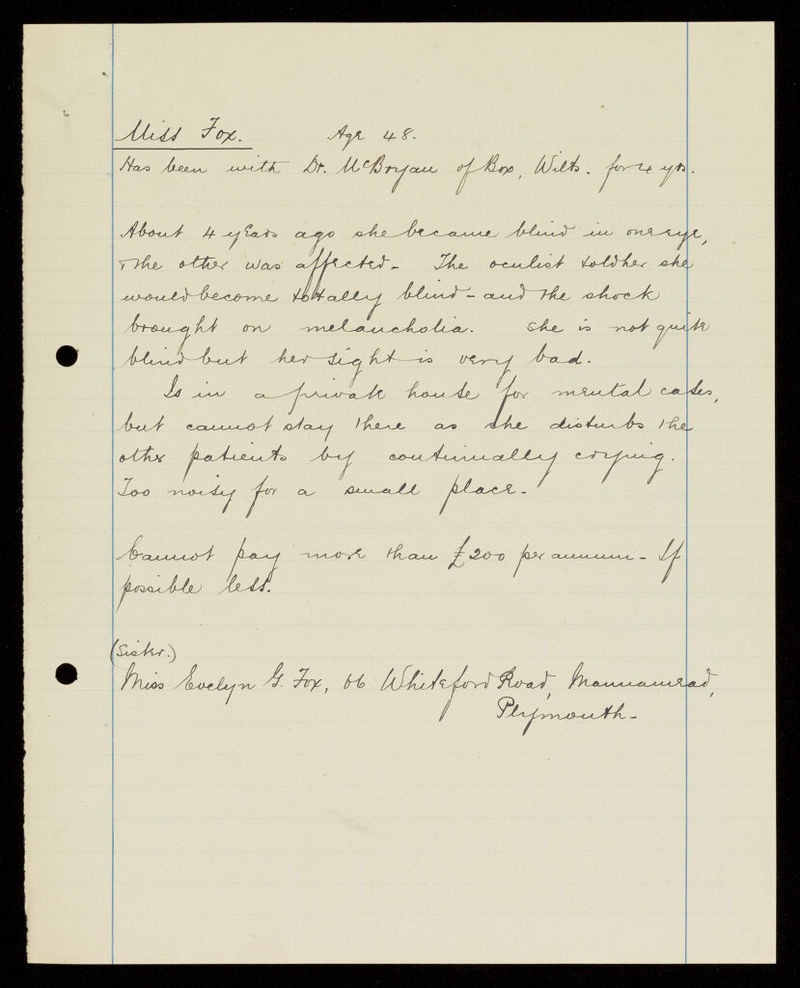 Miss Fox. Age 48.
Has been with Dr. McBryan of Box, Wilts. for 4 yrs.
About 4 years ago she became blind in one eye,
& the other was affected - The oculist told her she
would become totally blind - and the shock
brought on melancholia. She is not quite
blind but her sight is very bad.
Is in a private house for mental cases,
but cannot stay there as she disturbs the
other patients by continually crying.
Too noisy for a small place -
Cannot pay more than £200 per annum - If
possible less.
(Sister.)
Miss Evelyn G. Fox, Whiteford Road, Mannamead,
Plymouth -